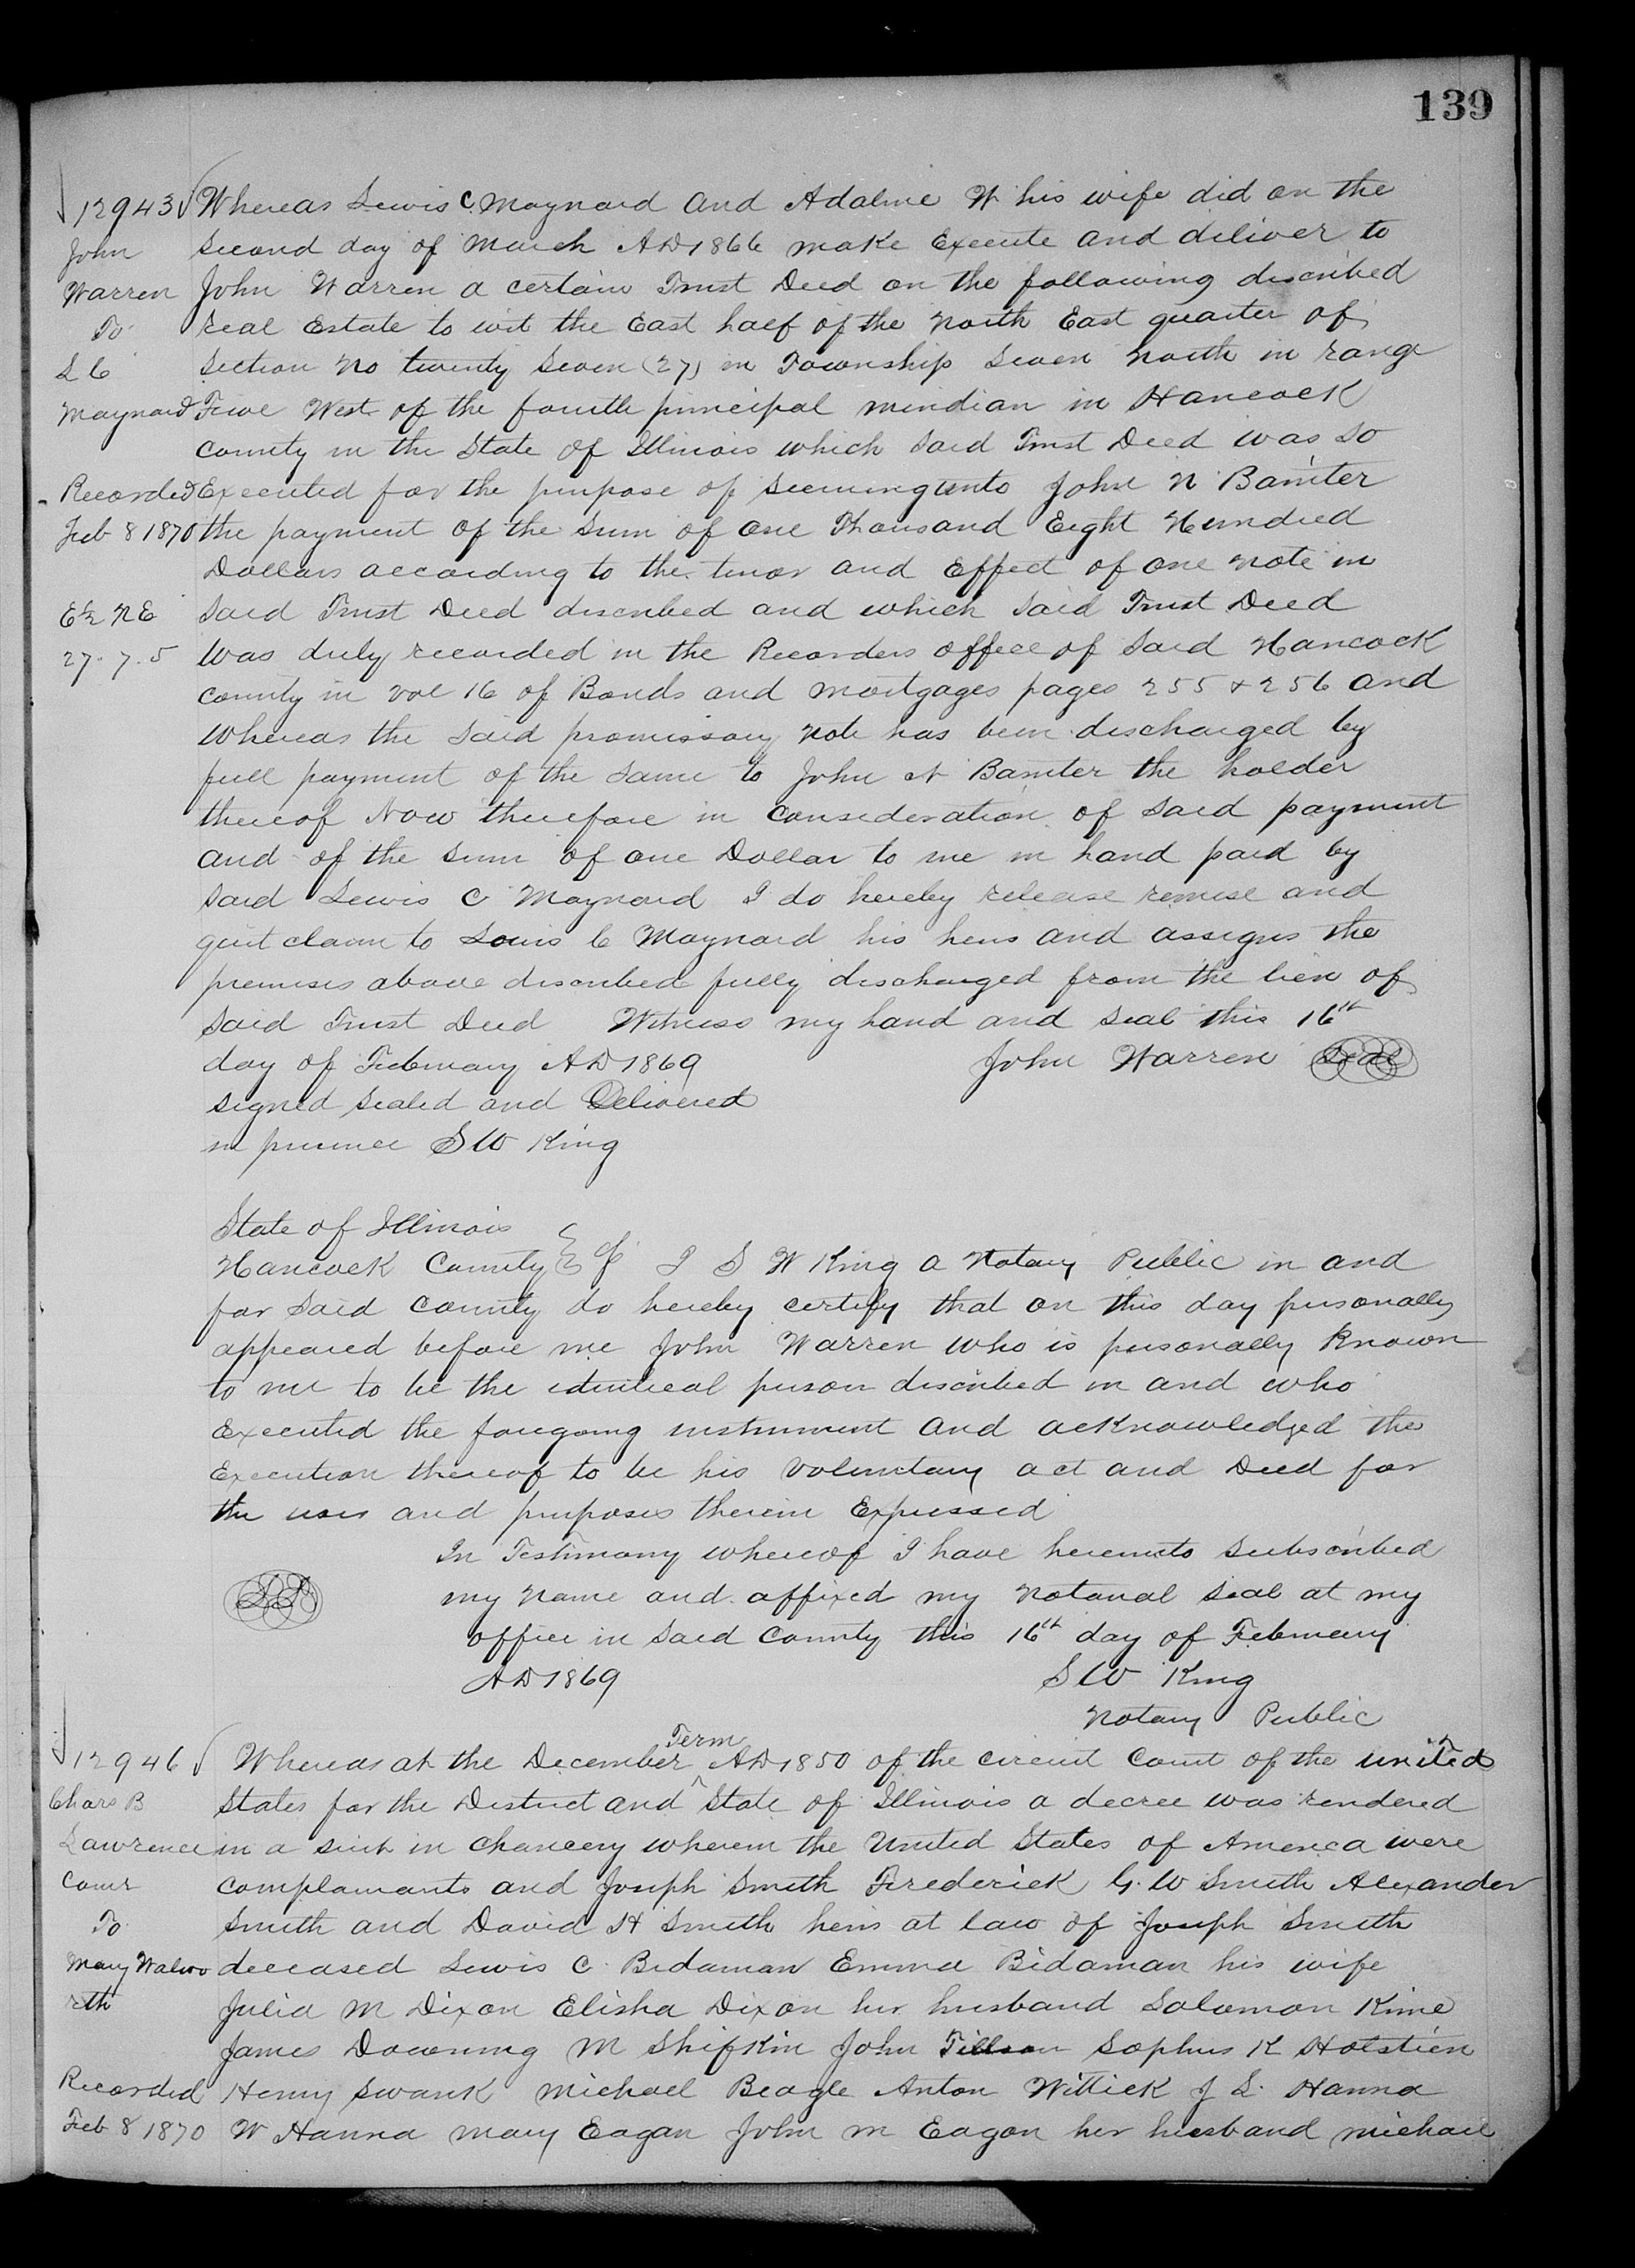 139
12943 Whereas Lewis C Maynard and Adaline W his wife did on the
John second day of March AD 1866 make Execute and deliver to
Warren John Warren a certain Trust Deed on the following discribed
To real Estate to wit the East half of the North East quarter of
L C section No twenty Seven (27) in Township Seven North in range
Maynard Five West of the fourth principal meridian in Hancock
county in the State of Illinois which said Trust Deed was so
Recorded Executed for the purpose of securing unto John N
Feb 8 1870 the payment of the sum of One Thousand Eight Hundred
Dollars according to the tenor and Effect of one Note in
E½ NE said Trust Deed discribed and which said Trust Deed
27. 7. 5 Was duly recorded in the Recorders office of said Hancock
county in vol 16 of Bonds and Mortgages pages 255 & 256 and
Whereas the said promissory note has been discharged by
full payment of the same to John N the holder
thereof Now therefore in consideration of said payment
and of the sum of one Dollar to me in hand paid by
said Lewis C Maynard I do hereby release remise and
quit claim to Louis C Maynard his heirs and assigns the
premises above discribed fully discharged from the lien of
said Trust Deed Witness my hand and seal this 16th
day of February AD 1869 John Warren Seal
signed sealed and Delivered
in presence S W King
State of Illinois
Hancock County I S W King a Notary Public in and
for said county do hereby certify that on this day personally
appeared before me John Warren who is personally Known
to me to be the identical person discribed in and who
Executed the foregoing instrument and acknowledged the
Execution thereof to be his voluntary act and Deed for
the uses and purposes therein Expressed
In Testimony whereof I have hereunto subscribed
LS my name and affixed my Notarial seal at my
office in said County this 16th day of February
AD 1869 S W King
Notary Public
12946 Whereas at the December Term AD 1850 of the circuit Court of the united
Chars B States for the District and State of Illinois a decree was rendered
Lawrence in a suit in chancery wherein the United States of America were
Comr complainants and Joseph Smith Frederick G. W Smith Alexander
To Smith and David H Smith heirs at law of Joseph Smith
Mary Walwo deceased Lewis C. Bidaman Emma Bidaman his wife
rth Julia M Dixon Elisha Dixon her husband Solomon Kime
James Downing M Shifkin John Tillson Sophus K Holstien
Recorded Henry Swank Michael Beagle Anton Wittick J L. Hanna
Feb 8 1870 W Hanna Mary Eagan John M Eagan her husband Michael